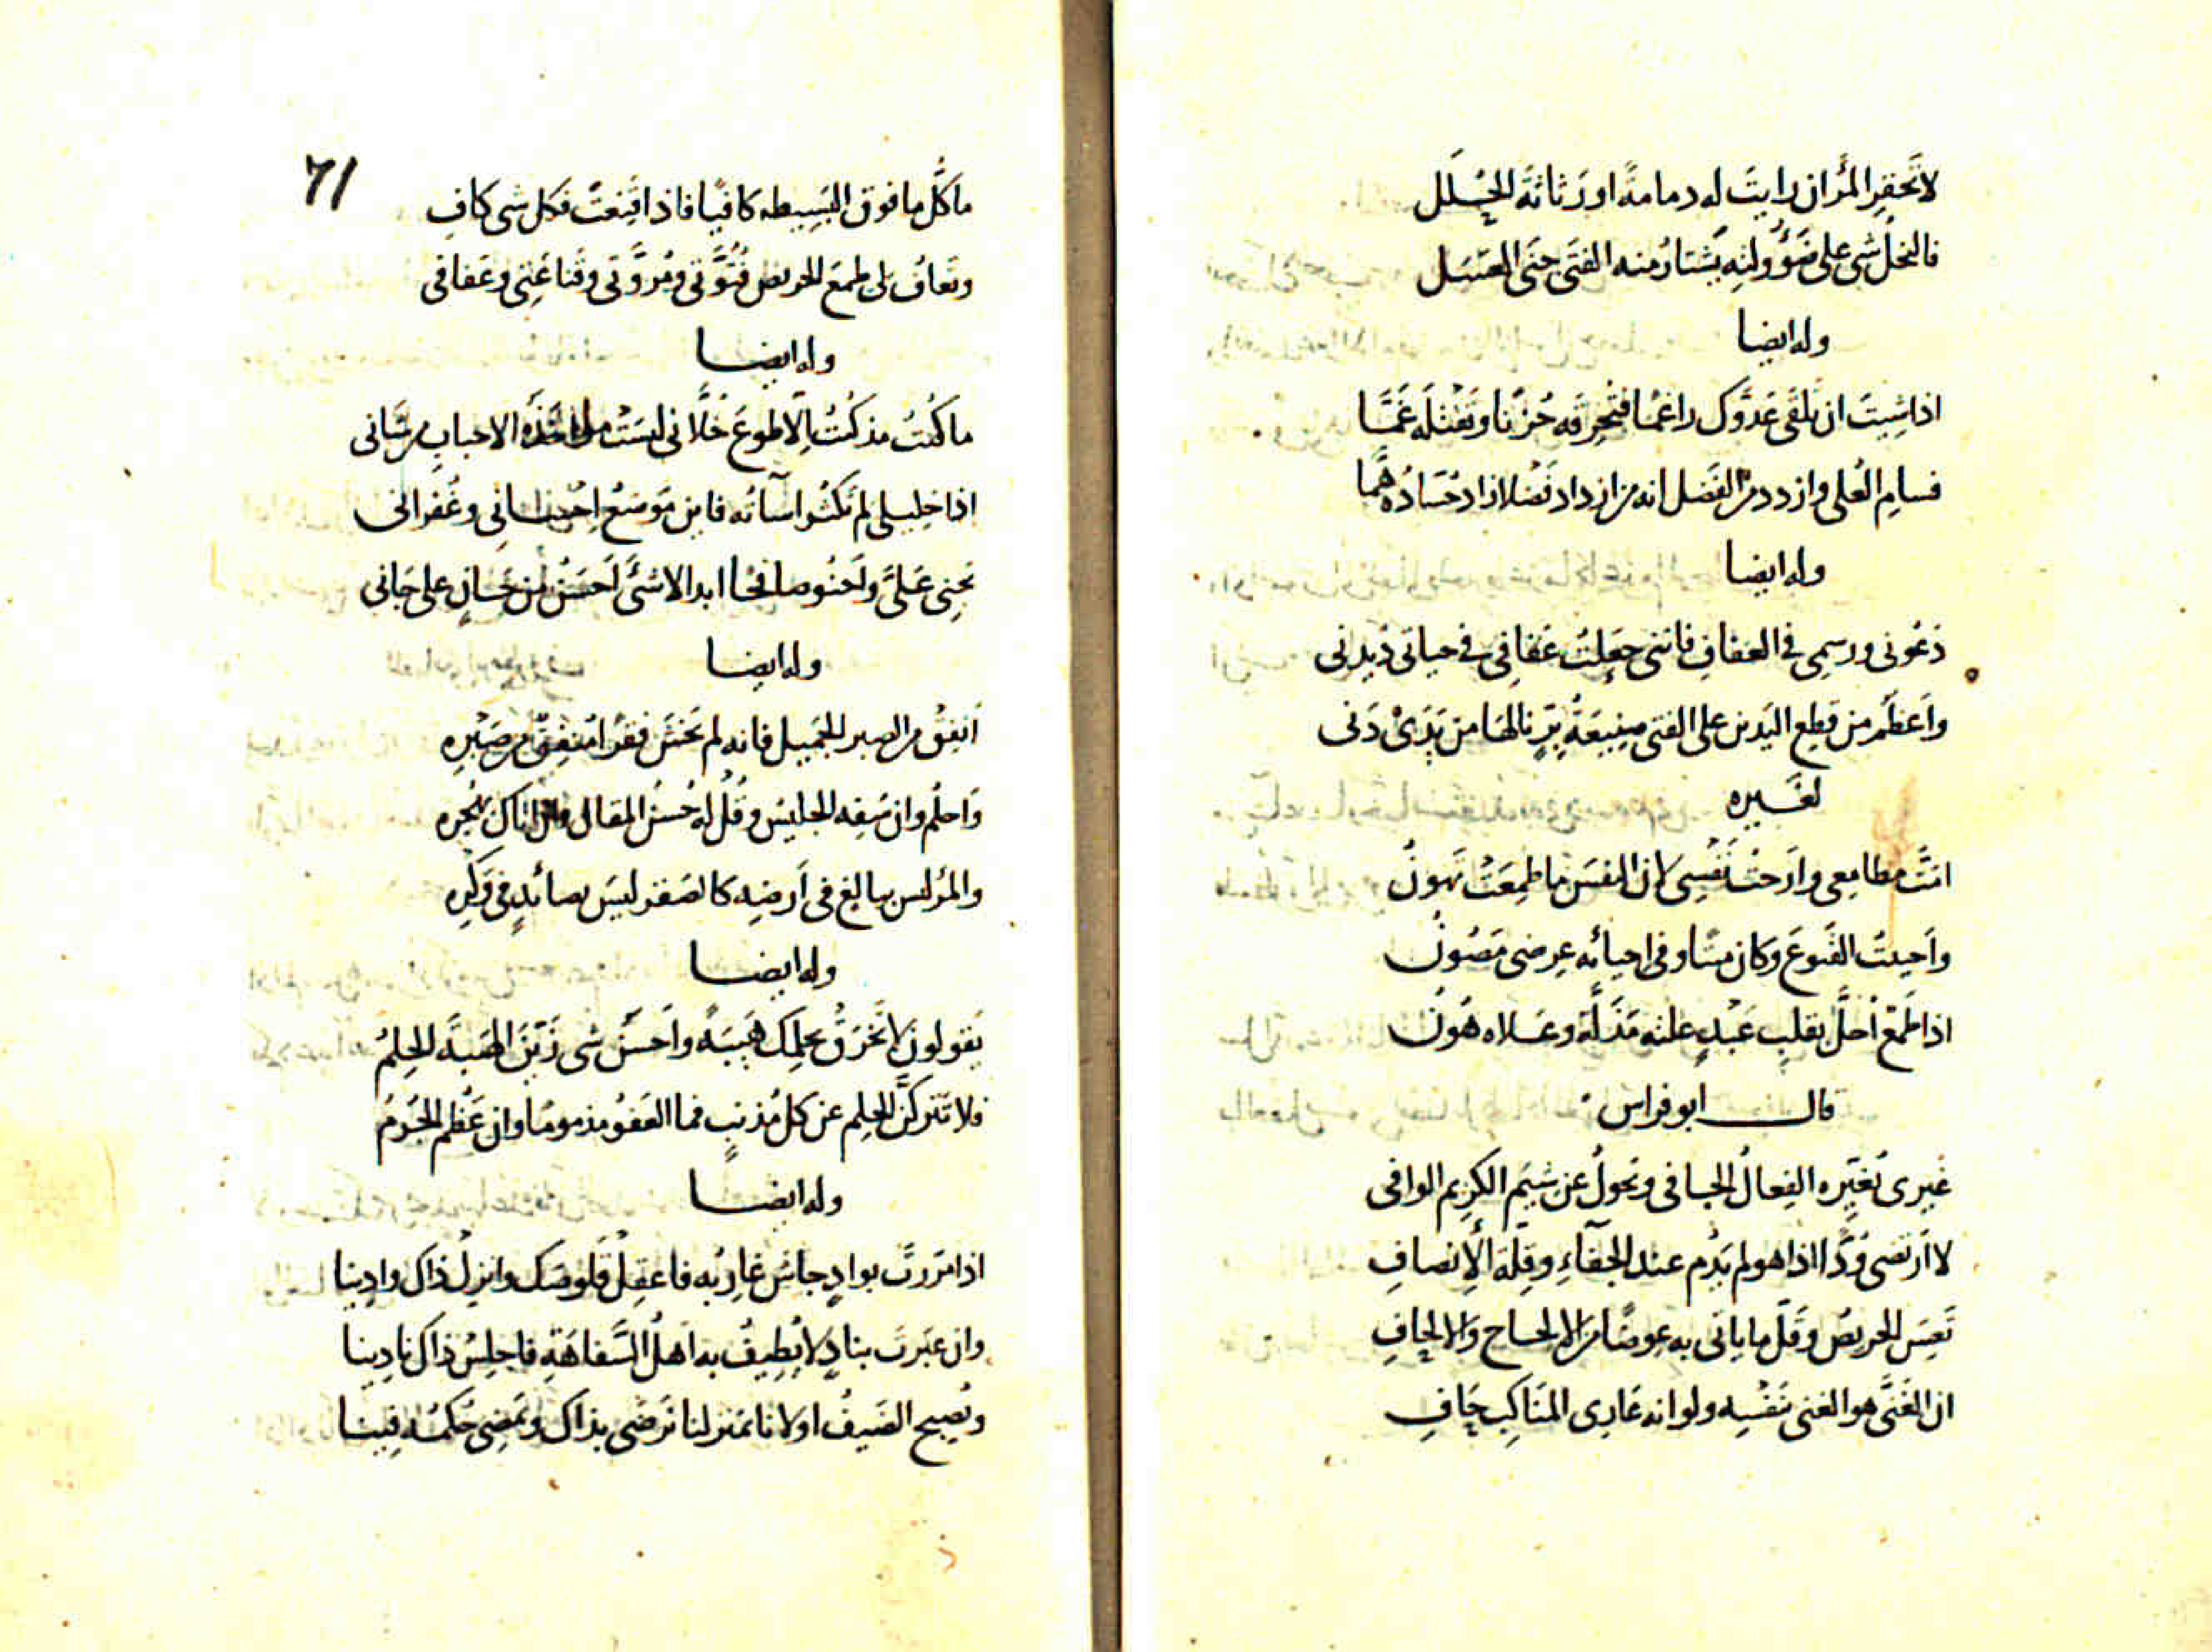 لا تَحقِرِ المرْأَ ان رايتَ له دمامةً او رَثاثةَ الحُلَل
فالنحلُ شى على ضؤُولتِه يَشتارُ منه الفتَى جَنَى العَسَل
وله ايضا
اذا شِيتَ ان تلقَى عَدُوَّك راغمًا فتُحرِقَه حُزْنًا وتَقْتلَه غمَّا
فسامِ العُلى وازدد مِن الفَضل انه من ازداد فَضْلا زاد حُسّادُه همَّا
وله ايضا
دَعُونى ورسمِى فى العفافِ فاننى جعلتُ عَفافِى فى حياتى دَيدنى
واَعظَمُ من قطعِ اليَدين على الفتى صنِيعَةُ بِرٍّ نالهَا من يَدَىْ دَنى
لغيره
امَتُّ مطامِعى وارَحتُ نَفْسِى لان النفسَ ما طمِعَتْ تَهونُ
واَحيَيتُ القَنوعَ وكان ميتا وفى احيائه عِرضى مَصُونُ
اذا طَمَعٌ احَلَّ بقلبِ عَبْدٍ علته مَذَلَّةٌ وعَلاه هُونُ
قال ابو فراس
غيرى يُغيِّره الفِعالُ الجافى ويَحولُ عن شِيَم الكريم الوافى
لا ارَتضى وُدًّا اذا هو لم يَدُم عند الجفآءِ وقِلّة الاِنصافِ
تَعِسَ الحريصُ وقلّ ما ياتى به عِوضًا مِن الالحاح والالحافِ
ان الغَنىَّ هو الغنى بنَفْسِه ولو انه عَارِى المنَاكِب حَافِ
71
ما كلُّ ما فوق البَسِيطه كافيًا فاذا قنِعتَ فكل شى كافِ
وتعافُ لى طمعَ الحريص فُتُوَّتى ومُروَّتى وقَناعَتِى وعَفافى
وله ايضا
ما كنتُ مذ كنتُ الّا طوعَ خُلّانى ليسَتْ مؤاخذَةُ الاحباب مِن شانى
اذا خليلى لم تكثُر اسآئته فاين مَوضعُ اِحْسانى وغُفرانى
يَجنِى عَلىَّ واَحنُو صافحًا ابدا لا شىَّ اَحسَنُ من حَانٍ على جَانى
وله ايضا
اَنفِقْ من الصبر الجَميل فانه لم يَخشَ فقرًا مُنفِقٌ من صَبْرِه
وَاحلُم وان سَفِه الجليسُ وقُلْ له حُسنُ المقال اذا اتاك بهُجرِه
والمرُ ليس ببالغ فى اَرضِه كالصَقر ليسَ بصائدٍ فى وَكْرِه
وله ايضا
يَقولون لا تَخرِق بحلِمكَ هَيبَةً واَحسَنُ شى زَيّنَ الهَيبَةَ الحِلمُ
فلا تَتركنَّ الحِلم عن كل مُذنبٍ فما العَفوُ مذمومًا وان عَظُم الجُرمُ
وله ايضا
اذا مَررتَ بوادٍ جاشَ غارِبُه فاعقِلْ قَلوصَك وانزِلْ ذاك وادِينا
وان عبَرتَ بنادٍ لا يُطِيفُ به اهلُ السَّفاهَةِ فاجلِسْ ذاك نادِينا
ويُصبح الضيفُ اولانا بمَنزلنا نَرضَى بذاك ويَمضِى حُكمُه فِينا